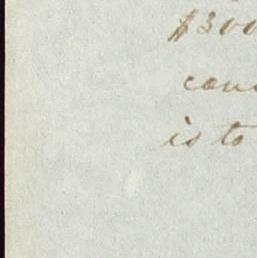 $300
can
is to